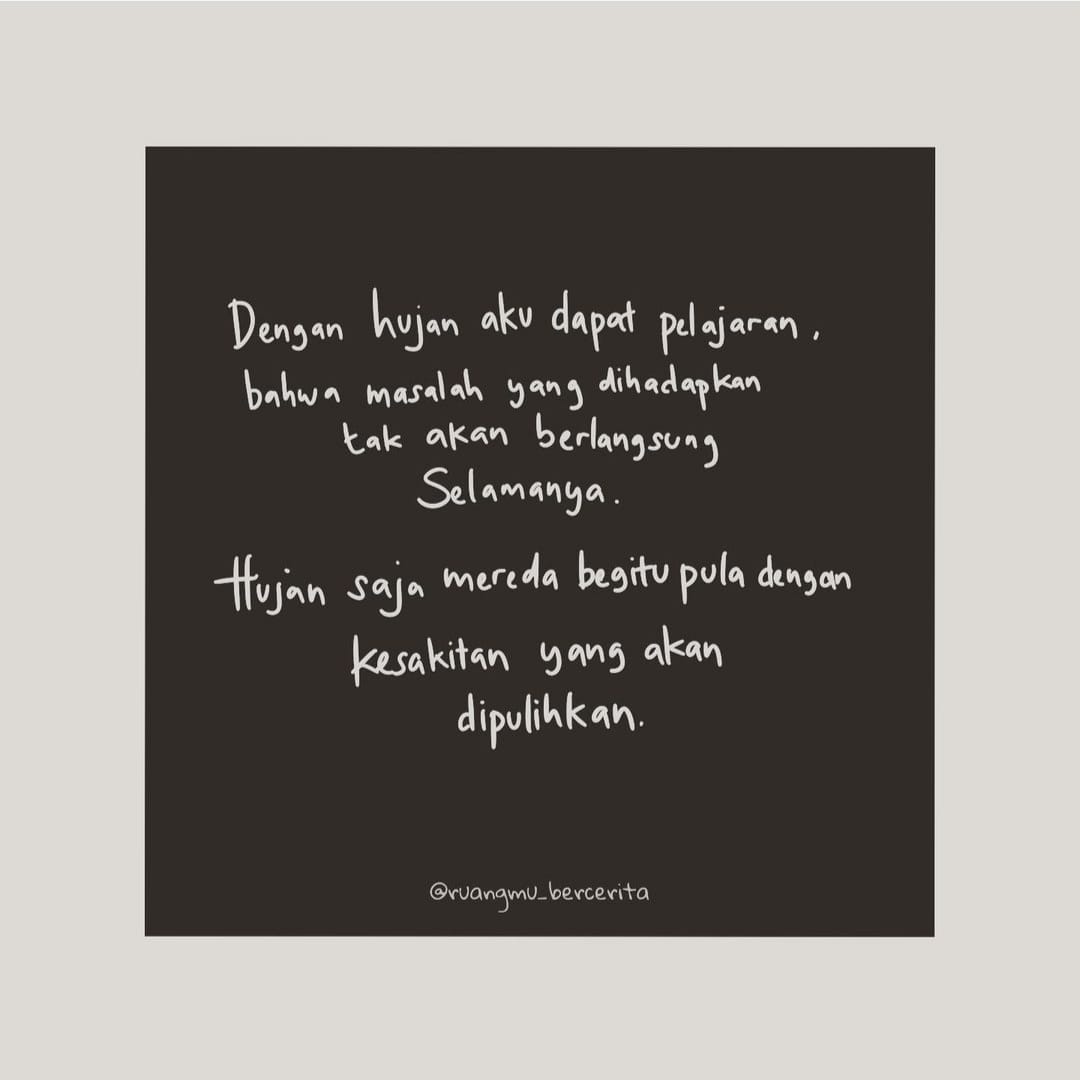 Dengan hujan aku dapat pelajaran,
bahwa masalah yang dihadapkan
tak akan berlangsung
Selamanya.
Hujan saja mereda begitu pula dengan
kesakitan yang akan
dipulihkan.
@ruangmu_bercerita